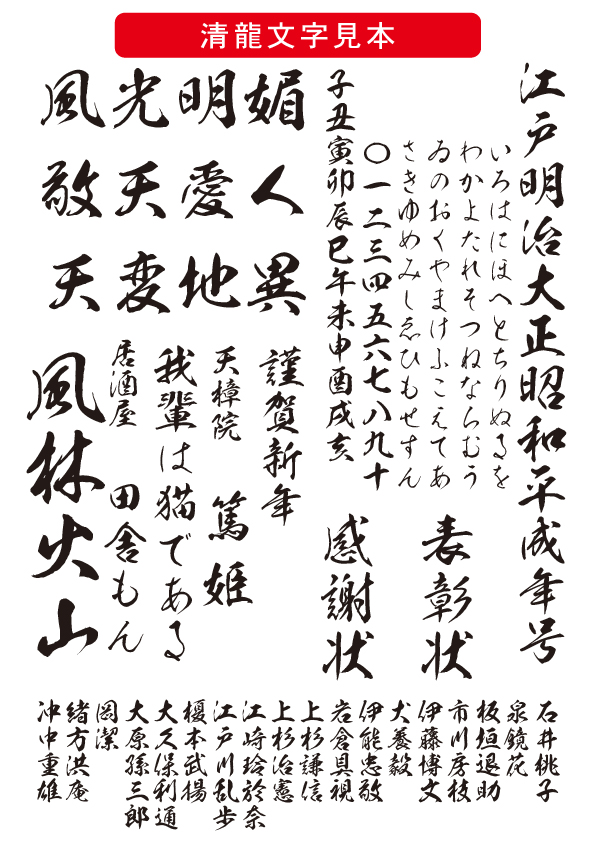 清龍文字見本
江戸明治大正昭和平成年号
いろはにほへとちりぬるを
わかよたれそつねならむう
ゐのおくやまけふこえてあ
さきゆめみしゑひもせすん
〇一二三四五六七八九十
子丑寅卯辰巳午未申酉戌亥
表彰状
感謝状
媚人異
明愛地
光天変
風敬天
謹賀新年
天樟院 篤姫
我輩は猫である
居酒屋 田舎もん
風林火山
石井桃子
泉鏡花
板垣退助
市川房枝
伊藤博文
犬養毅
伊能忠敬
岩倉具視
上杉謙信
上杉治憲
江崎玲於奈
江戸川乱歩
榎本武揚
大久保利通
大原孫三郎
岡潔
緒方洪庵
沖中重雄